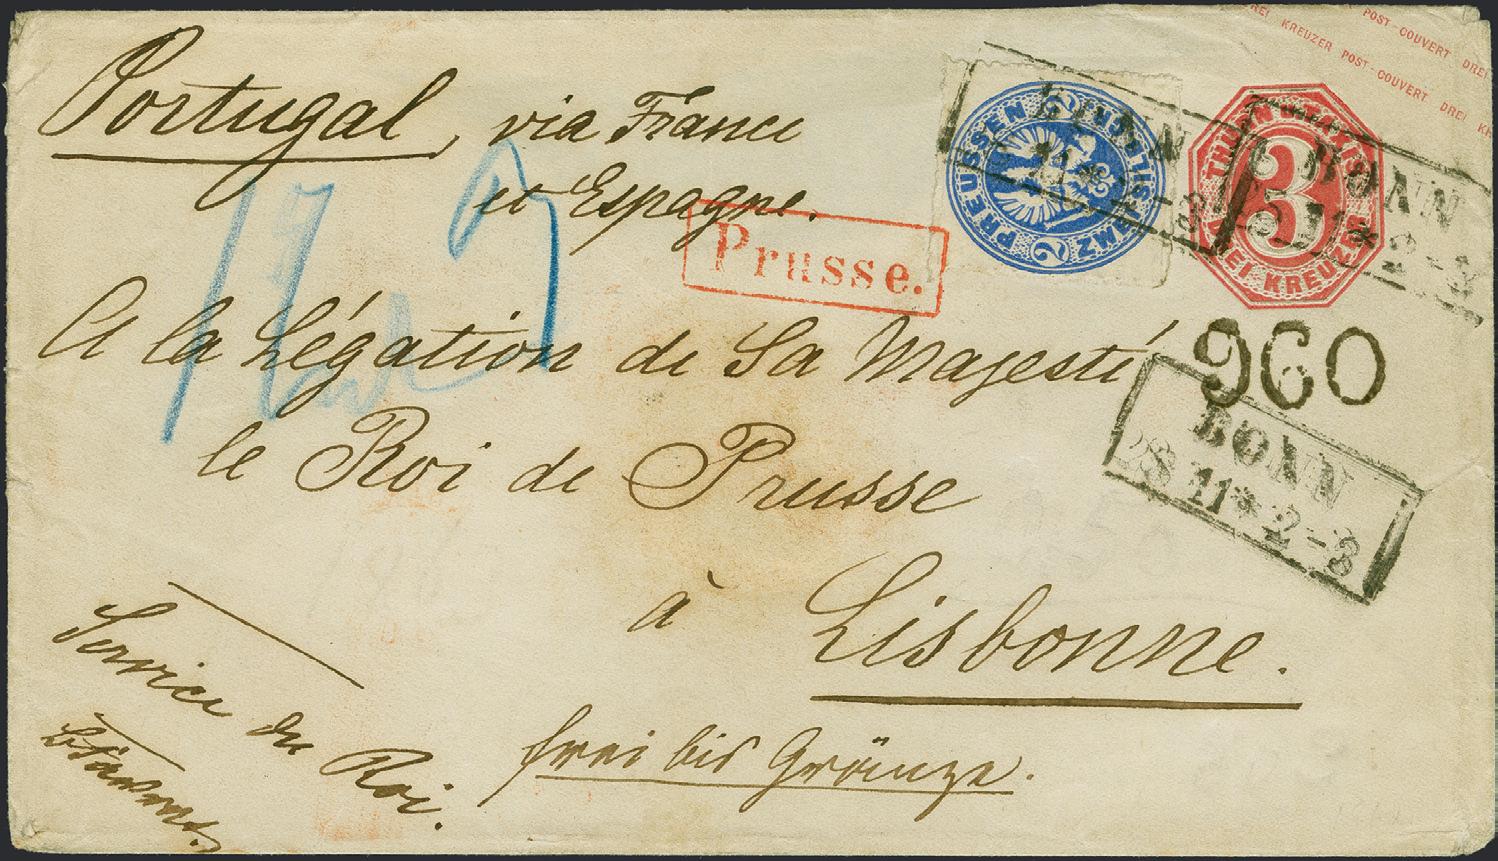 POST-COUVERT DREI
DREI KREUZER POST-COUVERT DREI KR
Portugal, via France
et Espagne.
Prusse.
PREUSSEN 2 SILB.GR. ZWEI 2
THURN U. TAXIS
3
DREI KREUZER
BONN
11*2-3
BONN
11*2-3
960
BONN
28 11*2-3
A la Légation de Sa Majesté
le Roi de Prusse
à Lisbonne.
Service du Roi.
frei bis Gränze.